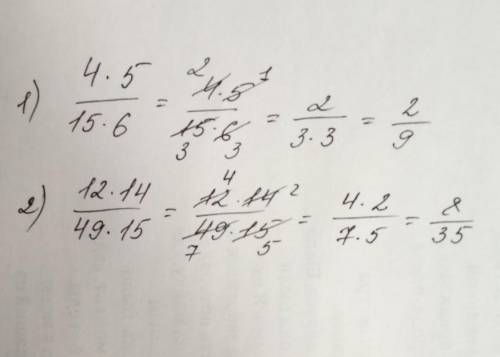 1) 4·5/15·6 = 4·5/15·6 = 2/3·3 = 2/9
2) 12·14/49·15 = 12·14/49·15 = 4·2/7·5 = 8/35